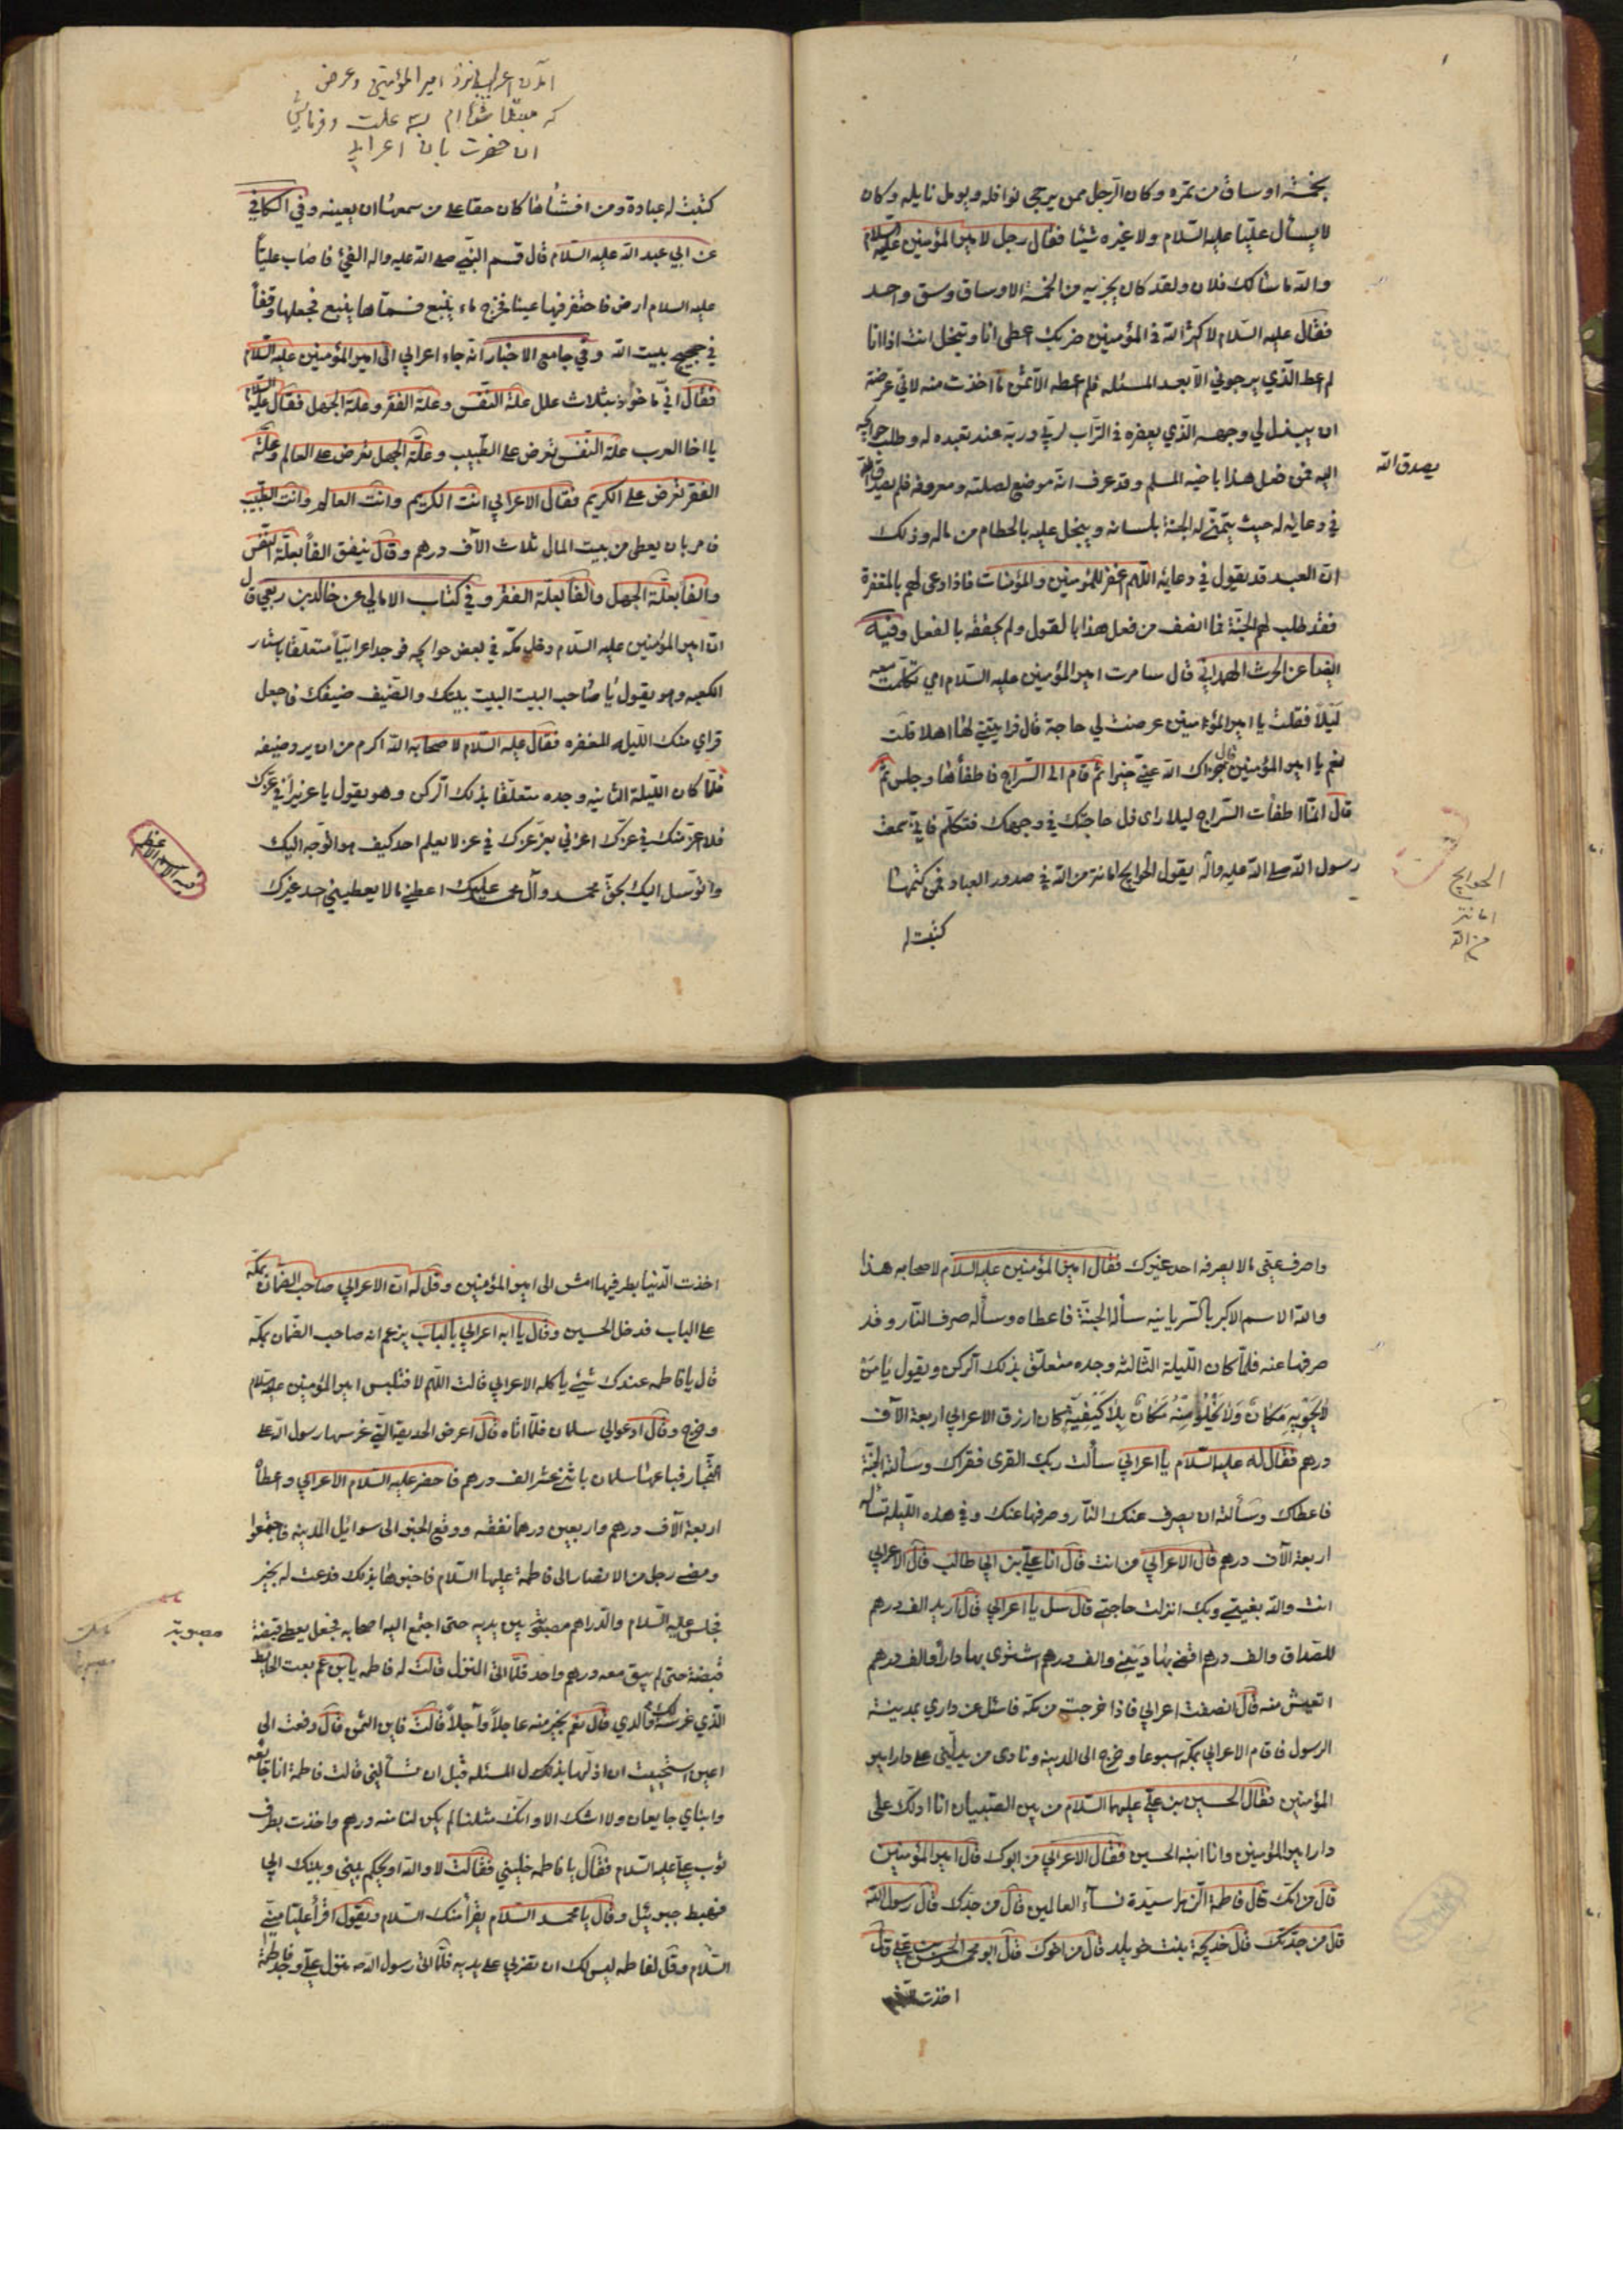 بخمسة اوساق من تمره وكان الرجل ممن يرجى نوافله ويومل نايله وكان
لا يسأل عليا عليه السلام ولا غيره شيئا فقال رجل لامير المؤمنين عليه السلام
والله ما سالك فلان ولقد كان يجزيه من الخمسة الاوساق وسق واحد
فقال عليه السلام لا كثر الله في المؤمنين ضربك اعطى انا وتبخل انت اذا انا
لم اعط الذي يرجوني الا بعد المسئله فلم اعطه الا ثمن ما اخذت منه لاني عرضته
ان يبذل لي وجهه الذي يعفره في التراب لربي وربه عند تعبده له وطلب حوايجه
اليه فمن فعل هذا باخيه المسلم وقد عرف انه موضع لصلته ومعروفه فلم يصدق الله
يصدق الله
في دعائه له حيث يتمنى له الجنة بلسانه ويبخل عليه بالحطام من ماله وذلك
ان العبد قد يقول في دعايه اللهم اغفر للمؤمنين والمؤمنات فاذا دعى لهم بالمغفرة
فقد طلب لهم الجنة فما انصف من فعل هذا بالقول ولم يحققه بالفعل وفيه
ايضا عن الحرث الهمداني قال سامرت امير المؤمنين عليه السلام اي تكلمت معه
ليلا فقلت يا امير المؤمنين عرضت لي حاجة قال فرايتني لها اهلا قلت
نعم يا امير المؤمنين قال جزاك الله عني خيرا ثم قام الى السراج فاطفأها وجلس ثم
قال انما اطفات السراج ليلا ارى ذل حاجتك في وجهك فتكلم فاني سمعت
رسول الله صلى الله عليه واله يقول الحوايج امانة من الله في صدور العباد فمن كتمها
الحوايج
امانة
من الله
كتبت له
آمدن اعرابی نزد امیر المؤمنین وعرض
که مبتلا شده ام بسه علت وفرمایش
ان حضرت بان اعرابی
كتبت له عبادة ومن افشاها كان حقا على من سمعها ان يعينه وفي الكافي
عن ابي عبد الله عليه السلام قال قسم النبي صلى الله عليه واله الفيئ فاصاب عليا
عليه السلام ارض فاحتفر فيها عينا فخرج ماء ينبع فسماها ينبع فجعلها وقفا
في حجيج بيت الله وفي جامع الاخبار انه جاء اعرابي الى امير المؤمنين عليه السلام
فقال اني ماخوذ بثلاث علل علة النفس وعلة الفقر وعلة الجهل فقال عليه السلام
يا اخا العرب علة النفس تعرض على الطبيب وعلة الجهل تعرض على العالم وعلة
الفقر تعرض على الكريم فقال الاعرابي انت الكريم وانت العالم وانت الطبيب
فامر بان يعطى من بيت المال ثلاث الآف درهم وقال ينفق الفا بعلة النفس
والفا بعلة الجهل والفا بعلة الفقر وفي كتاب الامالي عن خالد بن ربعي قال
ان امير المؤمنين عليه السلام دخل مكة في بعض حوايجه فوجد اعرابيا متعلقا باستار
الكعبه وهو يقول يا صاحب البيت البيت بيتك والضيف ضيفك فاجعل
قراي منك الليله المغفره فقال عليه السلام لاصحابه الله اكرم من ان يرد ضيفه
فلما كان الليلة الثانيه وجده متعلقا بذلك الركن وهو يقول يا عزيزا في عزك
فلا اعز منك في عزك اعزني بعز عزك في عز لا يعلم احد كيف هو اتوجه اليك
واتوسل اليك بحق محمد وآل محمد عليك اعطني ما لا يعطيني احد غيرك
قسم الاسم الاعظم
واصرف عني ما لا يصرفه احد غيرك فقال امير المؤمنين عليه السلام لاصحابه هذا
والله الاسم الاكبر بالسريانيه سأله الجنة فاعطاه وسأله صرف النار وقد
صرفها عنه فلما كان الليلة الثالثه وجده متعلق بذلك الركن ويقول يا من
لا يحويه مكان ولا يخلو منه مكان بلا كيفية كان ارزق الاعرابي اربعة الآف
درهم فقال له عليه السلام يا اعرابي سألت ربك القرى فقراك وسألته الجنة
فاعطاك وسألته ان يصرف عنك النار وصرفها عنك وفي هذه الليلة تسأله
اربعة الآف درهم قال الاعرابي من انت قال انا علي بن ابي طالب قال الاعرابي
انت والله بغيتي وبك انزلت حاجتي قال سل يا اعرابي قال اريد الف درهم
للصداق والف درهم اقضي بها ديني والف درهم اشتري بها دارا والف درهم
اتعيش منه قال انصفت اعرابي فاذا خرجت من مكة فاسئل عن داري بمدينة
الرسول فاقام الاعرابي بمكة اسبوعا وخرج الى المدينه ونادى من يدلني على دار امير
المؤمنين فقال الحسين بن علي عليهما السلام من بين الصبيان انا ادلك على
دار امير المؤمنين وانا ابنه الحسين فقال الاعرابي من ابوك قال امير المؤمنين
قال من امك قال فاطمة الزهرا سيدة نسآء العالمين قال من جدك قال رسول الله
قال من جدتك قال خديجة بنت خويلد قال من اخوك قال ابو محمد الحسن بن علي قال
اخذت الدنيا
اخذت الدنيا بطرفيها امش الى امير المؤمنين وقل له ان الاعرابي صاحب الضمان بمكة
على الباب فدخل الحسين وقال يا ابه اعرابي بالباب يزعم انه صاحب الضمان بمكة
قال يا فاطمه عندك شيئ يأكله الاعرابي قالت اللهم لا فتلبس امير المؤمنين عليه السلام
وخرج وقال ادعوا لي سلمان فلما اتاه قال اعرض الحديقة التي غرسها رسول الله على
التجار فباعها سلمان باثني عشر الف درهم فاحضر عليه السلام الاعرابي واعطاه
اربعة الآف درهم واربعين درهما نفقه ووقع الخبر الى سوايل المدينه فاجتمعوا
ومضى رجل من الانصار الى فاطمة عليها السلام فاخبرها بذلك فدعت له بخير
فجلس عليه السلام والدراهم مصبوبة بين يديه حتى اجتمع اليه اصحابه فجعل يعطي قبضة
مصبوبة
قبضة حتى لم يبق معه درهم واحد فلما اتى المنزل قالت له فاطمه يا بن عم بعت الحايط
الذي غرسه لك والدي قال نعم بخير منه عاجلا وآجلا قالت فاين الثمن قال دفعت الى
اعين استحييت ان اذلها بذلك ل المسئله قبل ان تسألني قالت فاطمة انا جائعه
وابناي جايعان ولا اشك الا وانك مثلنا لم يكن لنا منه درهم واخذت بطرف
ثوب علي عليه السلام فقال يا فاطمه خليني فقالت لا والله او يحكم بيني وبينك ابي
فهبط جبرئيل وقال يا محمد السلام يقرأ منك السلام ويقول اقرأ عليا مني
السلام وقل لفاطمه ليس لك ان تضربي على يديه فلما اتى رسول الله منزل علي وجد فاطمة